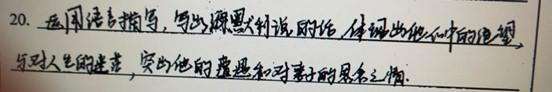 20. 运用语言描写，写出源默大利说的话，体现出他心中的绝望，
与对人生的迷茫，突出他的遭遇和对妻子的思念之情.